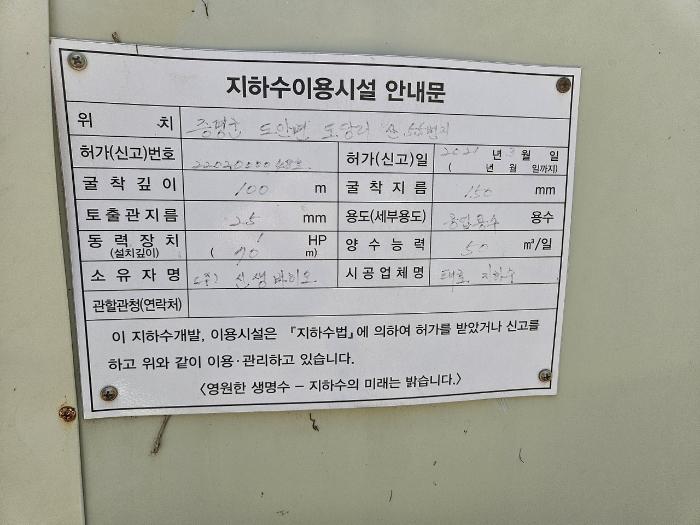 지하수이용시설 안내문
위 치 증평군 도안면 도당리 산
허가(신고)번호 허가(신고)일 2021 년 3 월 일
( 년 월 일까지)
굴착깊이 100 m 굴착지름 150 mm
토출관지름 25 mm 용도(세부용도) 용수
동력장치 1 HP 양수능력 50 m³/일
(설치깊이) ( 70 m)
소유자명 (주) 선생바이오 시공업체명 지하수
관할관청(연락처)
이 지하수개발, 이용시설은 『지하수법』에 의하여 허가를 받았거나 신고를
하고 위와 같이 이용·관리하고 있습니다.
〈영원한 생명수 – 지하수의 미래는 밝습니다.〉